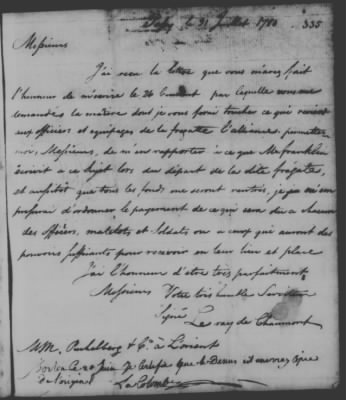 Passy le 31 Juillet 1780 335
Messieurs
J'ai reçu la lettre que vous m'avez fait
l'honneur de m'écrire le 24 Courant par laquelle vous me
demandés la maniere dont je vous ferai toucher ce qui revient
aux officiers et equipages de la fregatte l'alliance, permettez
moi, Messieurs, de m'en rapporter à ce que M. franklin
écrivit à ce sujet lors du départ de la dite frégatte,
et aussitot que tous les fonds me seront rentrés, je
d'ordonner le payement de ce qui sera du a chacun
des officers, matelots et Soldats ou a ceux qui auront des
pouvoirs suffisants pour recevoir en leur lieu et place
J'ai l'honneur d'etre très parfaitement
Messieurs Votre très humble Serviteur
Signé
Le ray de Chaumont
MM. & Co. à L'orient
Boston ce 20 Juin je Certifie que le Dessus est une vraye Copie
de l'original La Colombe